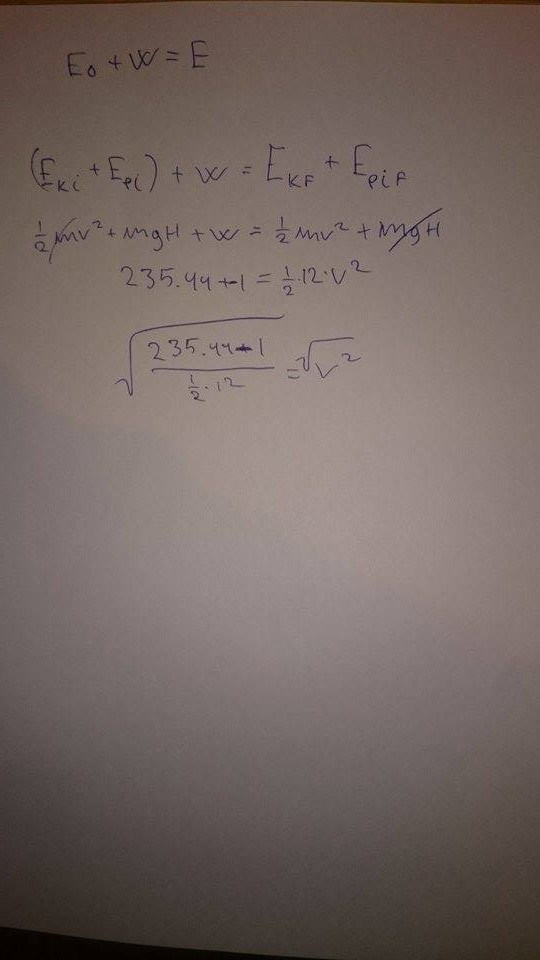 E₀ + W = E
(E_Ki + E_pi) + W = E_KF + E_piF
½mv² + mgH + W = ½mv² + mgH
235.44 + -1 = ½·12·V²
√((235.44 - 1)/(½·12)) = √V²